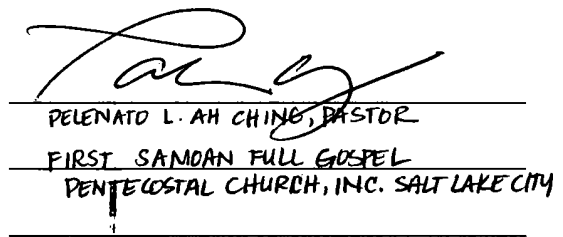 PELENATO L. AH CHING, PASTOR
FIRST SAMOAN FULL GOSPEL
PENTECOSTAL CHURCH, INC. SALT LAKE CITY